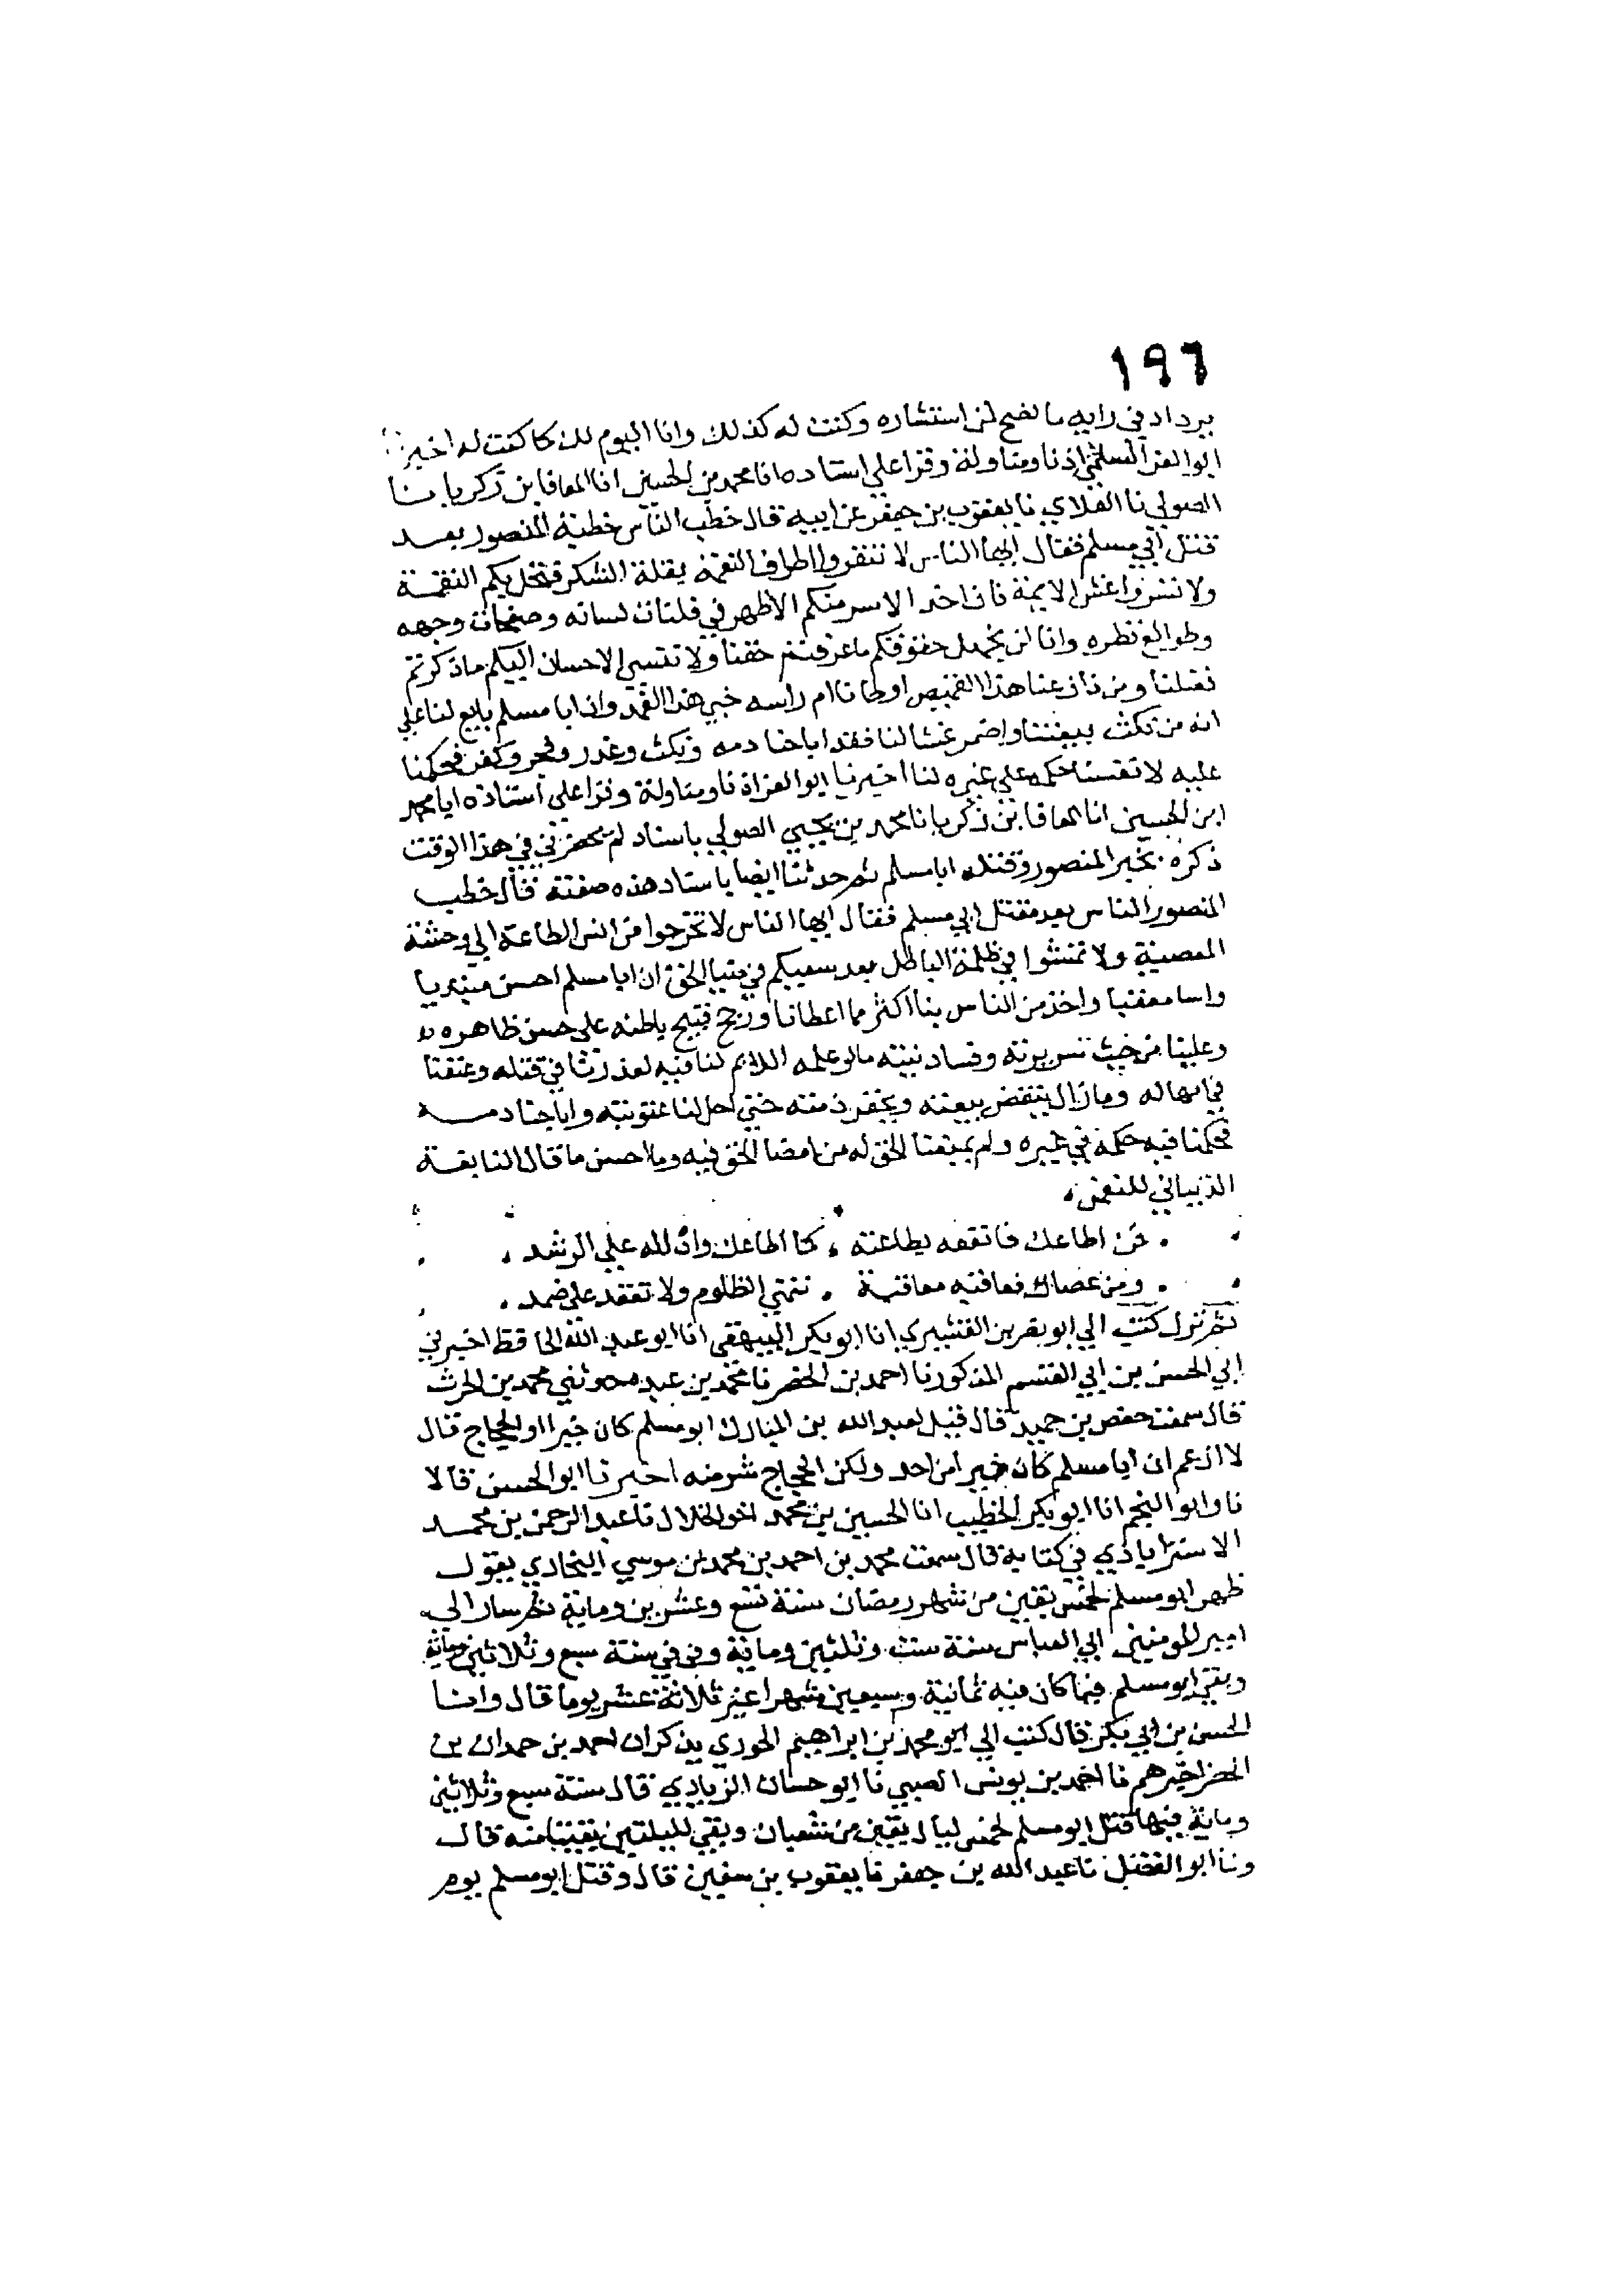 ١٩٦
يزداد في رايه ما نصح لمن استشاره وكنت له كذلك وانا اليوم لك كما كنت له اخبرنا
ابو العز السلمي اذنا ومناولة وقرا علي اسناده انا محمد بن الحسين انا المعافا بن زكريا نا
الصولي نا الغلابي نا يعقوب بن جعفر عن ابيه قال خطب الناس خطبة المنصور بعد
قتل ابي مسلم فقال ايها الناس لا تنفروا اطراف النعمة بقلة الشكر فتحل بكم النقمة
ولا تسروا غش الايمة فان احدا لا يسر منكم الا ظهر في فلتات لسانه وصفحات وجهه
وطوالع نظره وانا لن نجهل حقوقكم ما عرفتم حقنا ولا ننسى الاحسان اليكم ما ذكرتم
فضلنا ومن نازعنا هذا القميص اوطانا ام راسه خبي هذا الغمد وان ابا مسلم بايع لنا علي
انه من نكث ببيعتنا واضمر غشا لنا فقد اباحنا دمه ونكث وغدر وفجر وكفر فحكمنا
عليه لانفسنا حكمه علي غيره لنا اخبرنا ابو العز اذنا ومناولة وقرا علي اسناده ابا محمد
ابن الحسين انا المعافا بن زكريا نا محمد بن يحيي الصولي باسناد لم يحضرني في هذا الوقت
ذكره بخبر المنصور وقتله ابا مسلم ثم حدثنا ايضا باسناد هذه صفته قال خطب
المنصور الناس بعد مقتل ابي مسلم فقال ايها الناس لا تخرجوا من انس الطاعة الي وحشة
المعصية ولا تمشوا في ظلمة الباطل بعد سعيكم في ضيا الحق ان ابا مسلم احسن مبتديا
واسا معقبا واخذ من الناس بنا اكثر مما اعطانا ورجح قبيح باطنه علي حسن ظاهره
وعلمنا من خبث سريرته وفساد نيته ما لو علمه اللايم لنا فيه لعذرنا في قتله وعنفنا
في امهاله وما زال ينقض بيعته ويخفر ذمته حتي احل لنا عقوبته واباحنا دمه
فحكمنا فيه حكمه في غيره ولم يمنعنا الحق له من امضا الحق فيه وما احسن ما قال النابغة
الذبياني للنعمن
فمن اطاعك فانفعه بطاعته كما اطاعك وادلله علي الرشد
ومن عصاك فعاقبه معاقبة تنهي الظلوم ولا تقعد علي ضمد
كتب الي ابو نصر بن القشيري انا ابو بكر البيهقي انا ابو عبد الله الحافظ اخبرني
ابي الحسن بن ابي القسم المذكور نا احمد بن الخضر نا محمد بن عبد حدثني محمد بن الحرث
قال سمعت حفص بن حميد قال قيل لعبد الله بن المبارك ابو مسلم كان خيرا او الحجاج قال
لا ازعم ان ابا مسلم كان خيرا من احد ولكن الحجاج شر منه اخبرنا ابو الحسن قالا
نا وابو النجم انا ابو بكر الخطيب انا الحسين بن محمد اخو الخلال نا عبد الرحمن بن محمد
الاستراباذي في كتابه قال سمعت محمد بن احمد بن محمد بن موسي البخاري يقول
ظهر ابو مسلم لخمس بقين من شهر رمضان سنة تسع وعشرين وماية ثم سار الي
امير المومنين ابي العباس سنة ست وثلثين وماية وفي سنة سبع وثلاثين وماية
وبقي ابو مسلم فيما كان فيه ثمانية وسبعين شهرا غير ثلاثة عشر يوما قال وانبا
الحسن بن ابي بكر قال كتب الي ابو محمد بن ابراهيم الجوري يذكر ان احمد بن حمدان بن
الخضر اخبرهم نا احمد بن يونس الضبي نا ابو حسان الزيادي قال سنة سبع وثلاثين
وماية فيها قتل ابو مسلم لخمس ليال بقين من شعبان وبقي لليلتين بقيتا منه قال
ونا ابو الفضل نا عبد الله بن جعفر نا يعقوب بن سفين قال وقتل ابو مسلم يوم